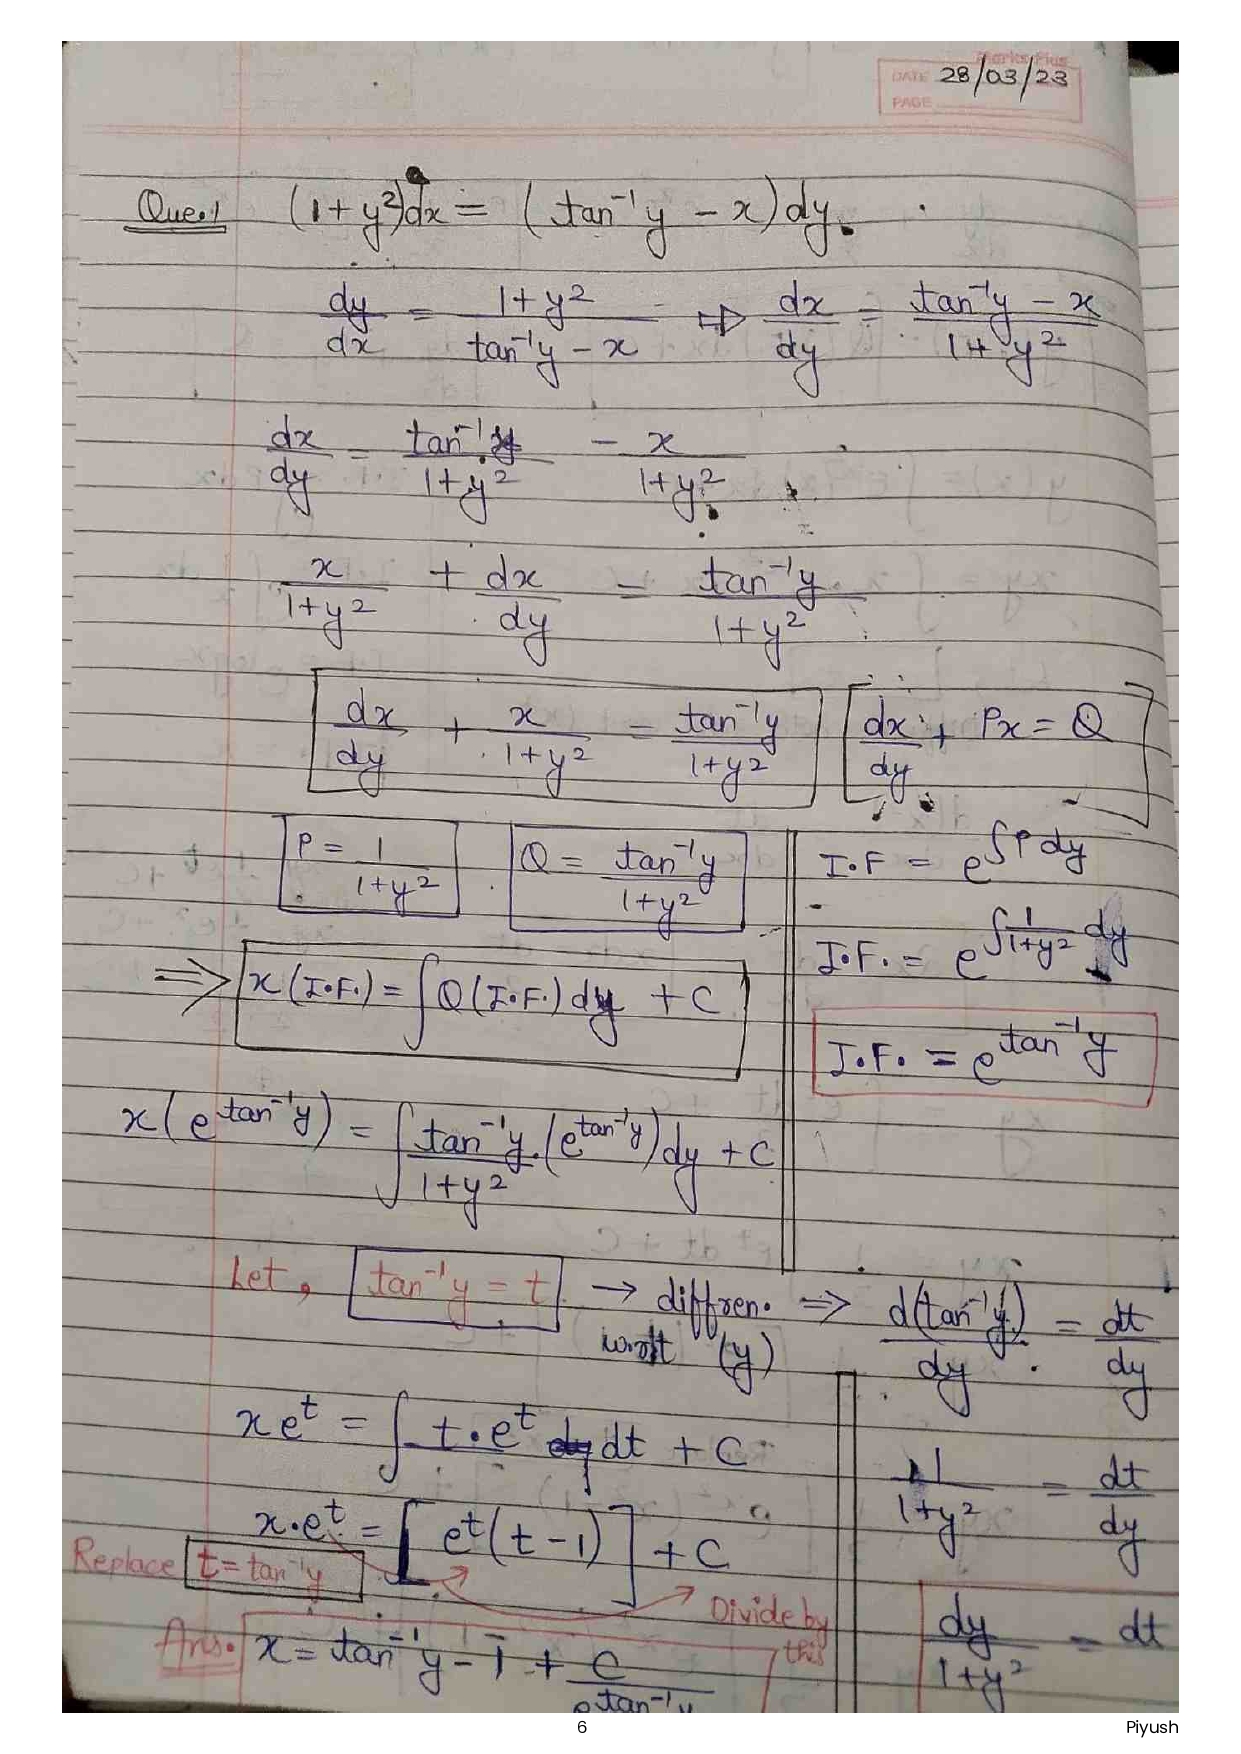 Marks Plus
DATE 28/03/23
PAGE
Que.1 (1+y²)dx = (tan⁻¹y - x)dy.
dy/dx = (1+y²)/(tan⁻¹y - x) ⇒ dx/dy = (tan⁻¹y - x)/(1+y²)
dx/dy = tan⁻¹y/(1+y²) - x/(1+y²)
x/(1+y²) + dx/dy = tan⁻¹y/(1+y²)
dx/dy + x/(1+y²) = tan⁻¹y/(1+y²) [dx/dy + Px = Q]
P = 1/(1+y²) Q = tan⁻¹y/(1+y²)
I.F = e^∫P dy
I.F. = e^∫1/(1+y²) dy
I.F. = e^tan⁻¹y
⇒ x(I.F.) = ∫Q(I.F.)dy + C
x(e^tan⁻¹y) = ∫tan⁻¹y/(1+y²).(e^tan⁻¹y)dy + C
Let, tan⁻¹y = t → diffren. w.r.t (y) ⇒ d(tan⁻¹y)/dy = dt/dy
1/(1+y²) = dt/dy
dy/(1+y²) = dt
xe^t = ∫t.e^t dt + C
x.e^t = [e^t(t-1)] + C
Replace t = tan⁻¹y
Divide by this
Ans. x = tan⁻¹y - 1 + C/e^tan⁻¹y
6
Piyush